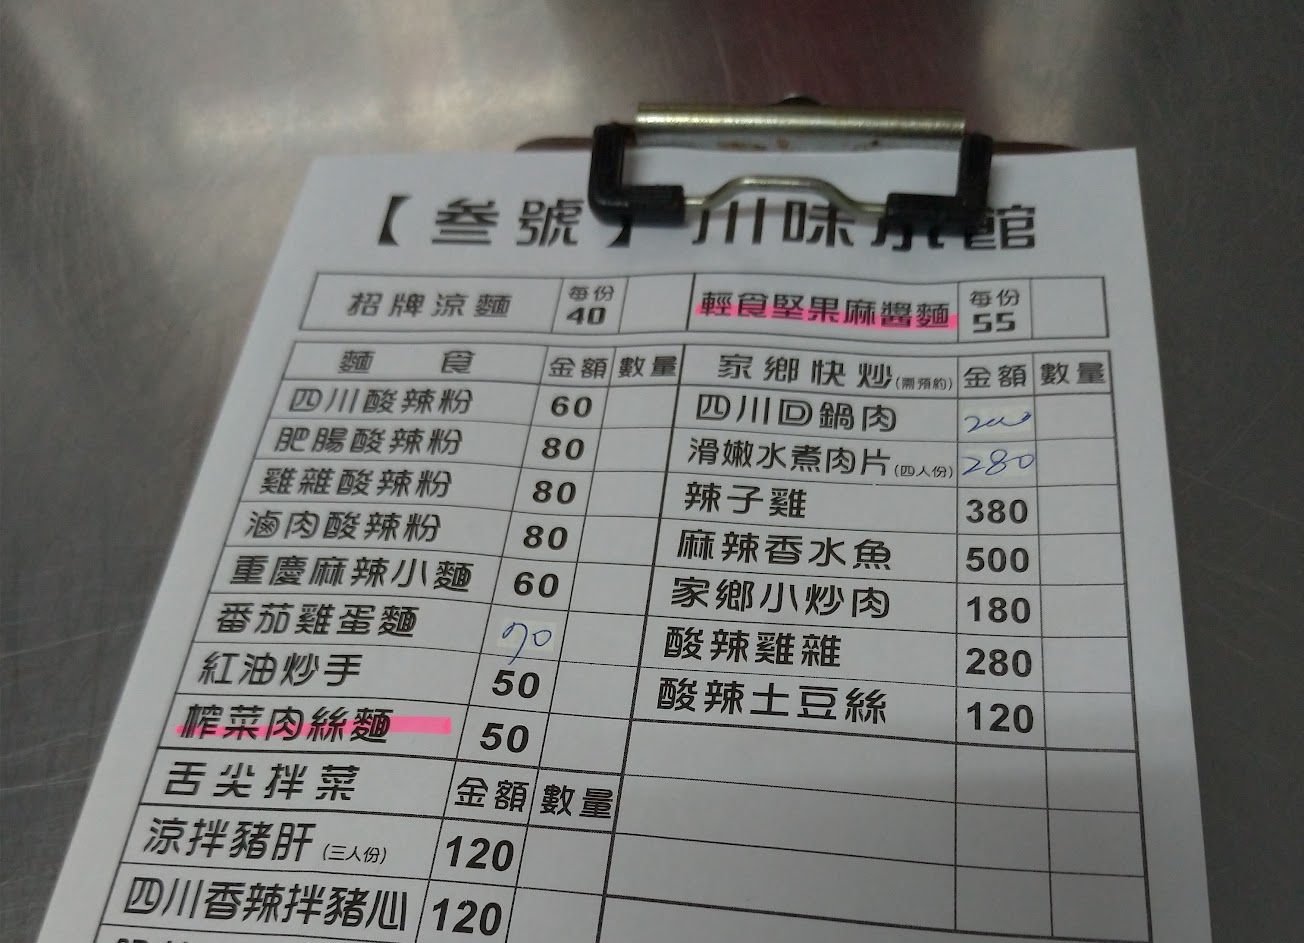 【叁號】川味小館
招牌涼麵 每份 40
輕食堅果麻醬麵 每份 55
麵食 金額 數量
四川酸辣粉 60
肥腸酸辣粉 80
雞雜酸辣粉 80
滷肉酸辣粉 80
重慶麻辣小麵 60
番茄雞蛋麵 70
紅油炒手 50
榨菜肉絲麵 50
舌尖拌菜 金額 數量
涼拌豬肝(三人份) 120
四川香辣拌豬心 120
家鄉快炒(需預約) 金額 數量
四川回鍋肉 200
滑嫩水煮肉片(四人份) 280
辣子雞 380
麻辣香水魚 500
家鄉小炒肉 180
酸辣雞雜 280
酸辣土豆絲 120